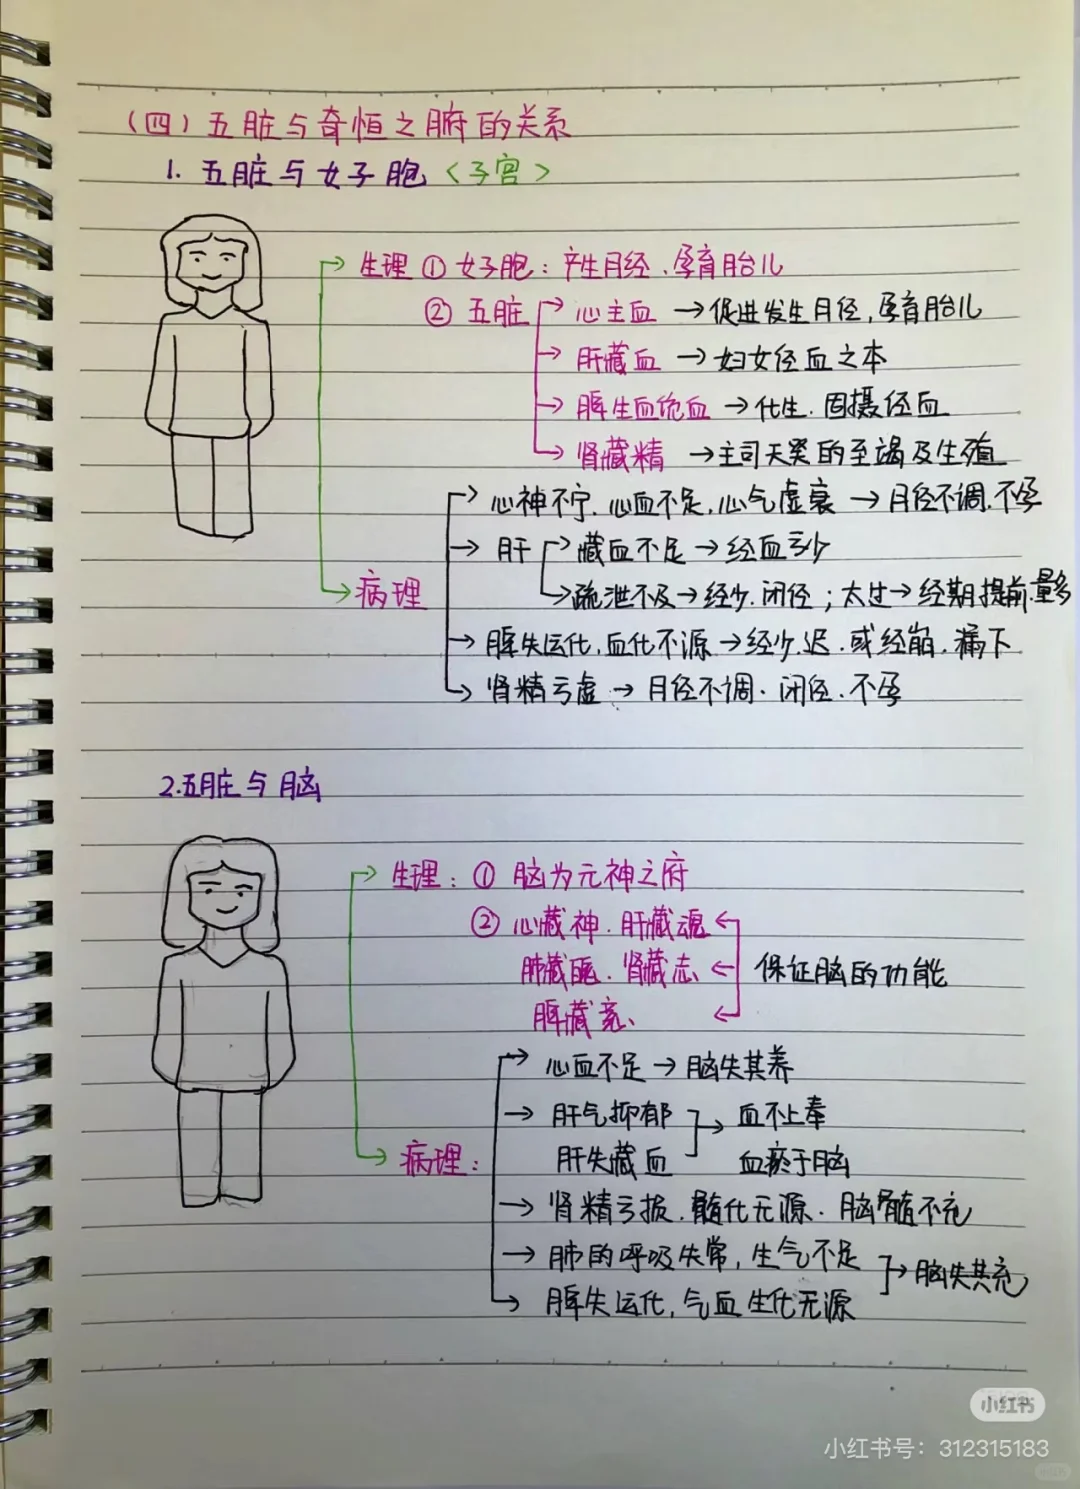 （四）五脏与奇恒之腑的关系
1. 五脏与女子胞〈子宫〉
生理 ① 女子胞：产生月经、孕育胎儿
② 五脏 心主血 → 促进发生月径，孕育胎儿
肝藏血 → 妇女径血之本
脾生血统血 → 化生、固摄径血
肾藏精 → 主司天癸的至竭及生殖
心神不宁、心血不足，心气虚衰 → 月径不调、不孕
肝 藏血不足 → 经血亏少
病理 疏泄不及 → 经少、闭径；太过 → 经期提前、量多
脾失运化，血化不源 → 经少、迟、或经崩、漏下
肾精亏虚 → 月径不调、闭径、不孕
2.五脏与脑
生理：① 脑为元神之府
② 心藏神、肝藏魂
肺藏魄、肾藏志 保证脑的功能
脾藏意
心血不足 → 脑失其养
肝气抑郁 → 血不上奉
病理： 肝失藏血 血瘀于脑
肾精亏损、髓化无源、脑髓不充
肺的呼吸失常，生气不足 → 脑失其充
脾失运化，气血生化无源
小红书
小红书号：312315183